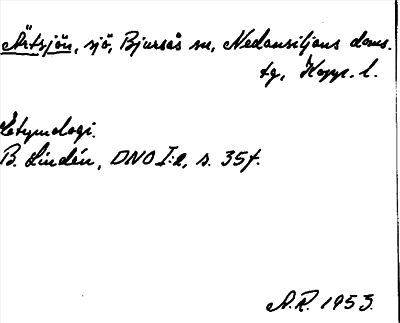 Ärtsjön, sjö, Bjursås sn, Nedansiljans doms.
tg, Kopp. l.
Etymologi.
B. Lindén, DNO I:2, s. 35f.
A.R. 1953.